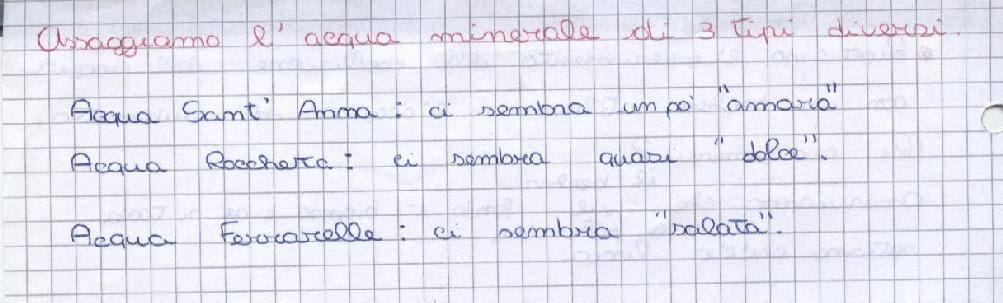 Assaggiamo l'acqua minerale di 3 tipi diversi.
Acqua Sant'Anna: ci sembra un po' "amara"
Acqua Rocchetta: ci sembra quasi "dolce".
Acqua Ferrarelle: ci sembra "salata".